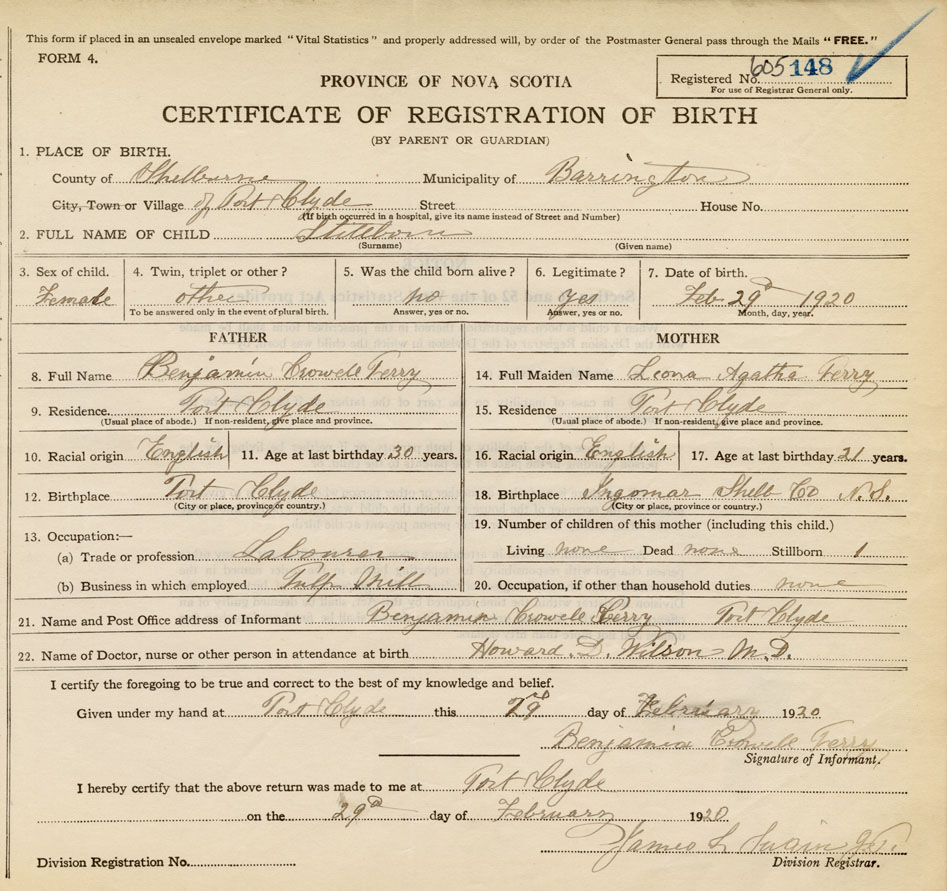 This form if placed in an unsealed envelope marked "Vital Statistics" and properly addressed will, by order of the Postmaster General pass through the Mails "FREE."
FORM 4.
605148
Registered No.
For use of Registrar General only.
PROVINCE OF NOVA SCOTIA
CERTIFICATE OF REGISTRATION OF BIRTH
(BY PARENT OR GUARDIAN)
1. PLACE OF BIRTH.
County of Shelburne Municipality of Barrington
City, Town or Village of Port Clyde Street House No.
(If birth occurred in a hospital, give its name instead of Street and Number)
2. FULL NAME OF CHILD Stillborn
(Surname) (Given name)
3. Sex of child. 4. Twin, triplet or other? 5. Was the child born alive? 6. Legitimate? 7. Date of birth.
Female other no yes Feb 29th 1920
To be answered only in the event of plural birth. Answer, yes or no. Answer, yes or no. Month, day, year.
FATHER MOTHER
8. Full Name Benjamin Crowell Perry 14. Full Maiden Name Leona Agatha Perry
9. Residence. Port Clyde 15. Residence Port Clyde
(Usual place of abode.) If non-resident, give place and province. (Usual place of abode.) If non-resident, give place and province.
10. Racial origin English 11. Age at last birthday 30 years. 16. Racial origin English 17. Age at last birthday 21 years.
12. Birthplace Port Clyde 18. Birthplace Ingomar Shelb Co N.S.
(City or place, province or country.) (City or place, province or country.)
13. Occupation:— 19. Number of children of this mother (including this child.)
(a) Trade or profession Labourer Living none Dead none Stillborn 1
(b) Business in which employed Pulp Mill 20. Occupation, if other than household duties none
21. Name and Post Office address of Informant Benjamin Crowell Perry Port Clyde
22. Name of Doctor, nurse or other person in attendance at birth Howard. D. Wilson M.D.
I certify the foregoing to be true and correct to the best of my knowledge and belief.
Given under my hand at Port Clyde this 29th day of February 1920
Benjamin Crowell Perry
Signature of Informant.
I hereby certify that the above return was made to me at Port Clyde
on the 29th day of February 1920
James L
Division Registration No. Division Registrar.